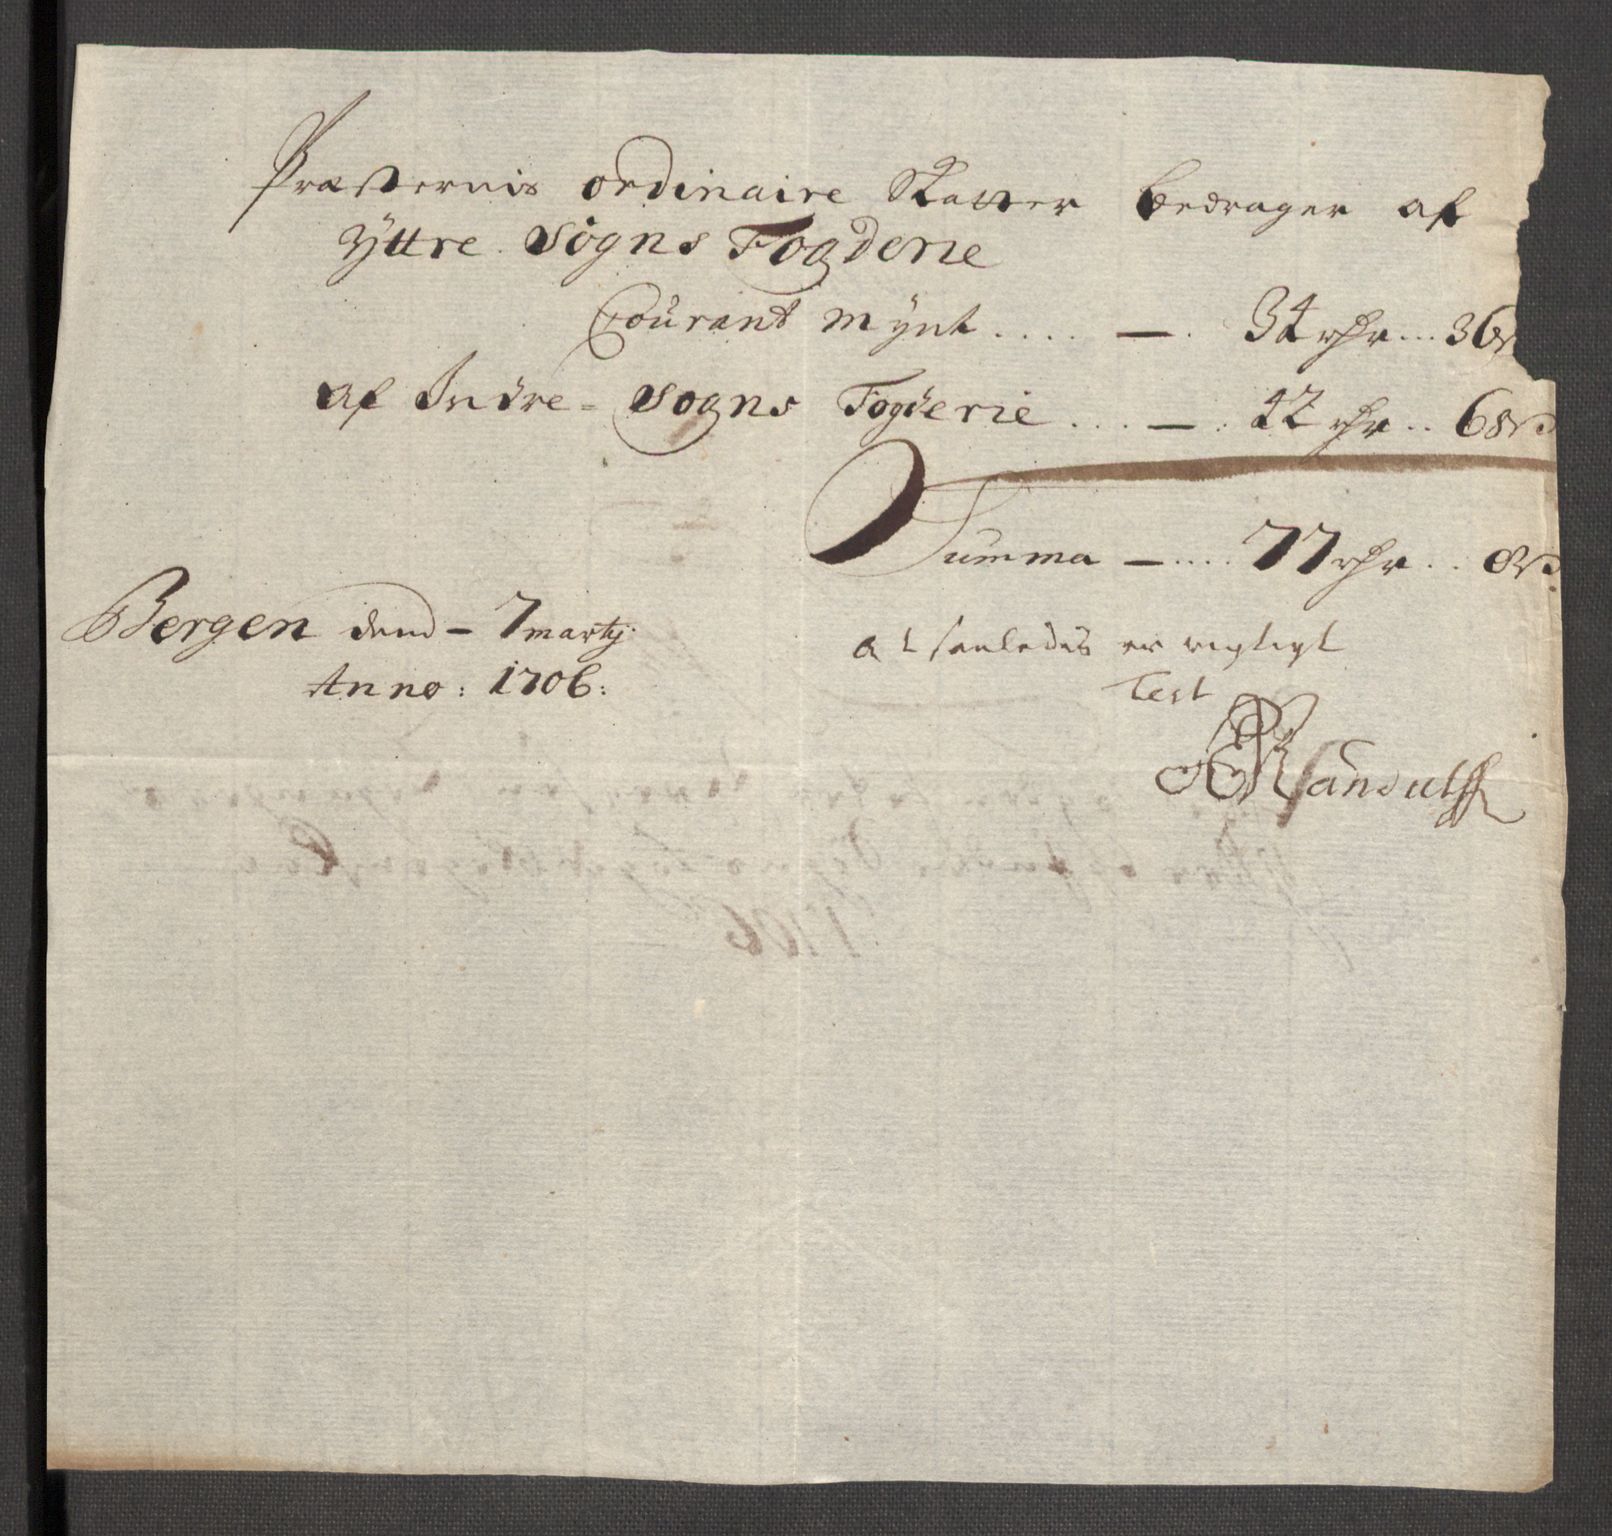 Præsternis ordinaire Skatter bedrager af
Yttre Sogns Fogderie
Courant Mynt .... — . 34 rdr ... 36 ß
af Indre = Sogns Fogderie ... — . 42 rdr .. 60 ß
Summa — .... 77 rdr .. 0 ß
Bergen dend – 7 marty:
Anno: 1706:
at saaledis er rigtigt
Test
Randulff